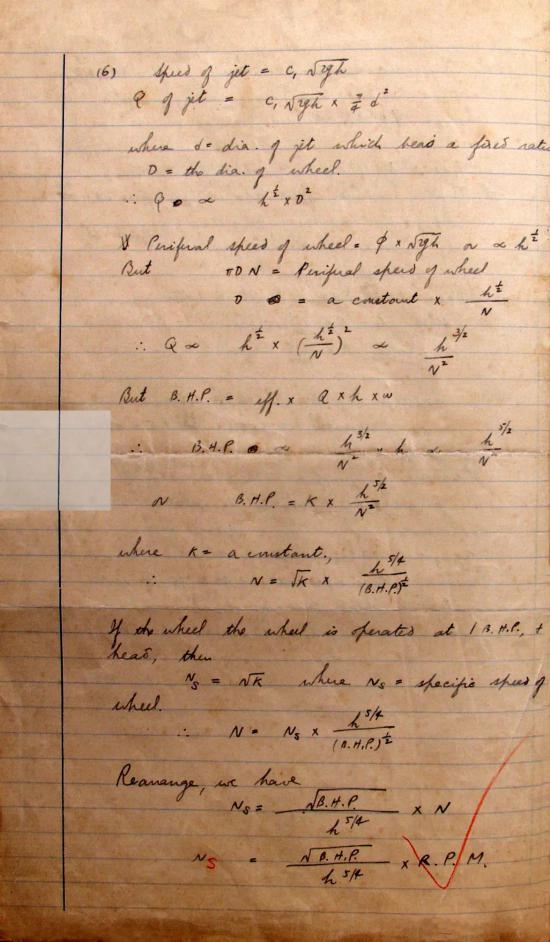 (6) Speed of jet = C, √2gh
Q of jet = C, √2gh × π/4 d²
where d = dia. of jet which bears a fixed ratio
D = the dia. of wheel.
∴ Q ∝ h^½ × D²
Perifual speed of wheel = φ × √2gh or ∝ h^½
But πDN = Perifual speed of wheel
D = a constant × h^½/N
∴ Q ∝ h^½ × (h^½/N)² ∝ h^3/2/N²
But B.H.P. = eff. × Q × h × w
∴ B.H.P. ∝ h^3/2/N² × h ∝ h^5/2/N²
or B.H.P. = K × h^5/2/N²
where K = a constant.,
∴ N = √K × h^5/4/(B.H.P.)^½
If the wheel the wheel is operated at 1 B.H.P., +
head, then
N_S = √K where N_S = specific speed of
wheel.
∴ N = N_S × h^5/4/(B.H.P.)^½
Rearrange, we have
N_S = √B.H.P./h^5/4 × N
N_S = √B.H.P./h^5/4 × R.P.M.